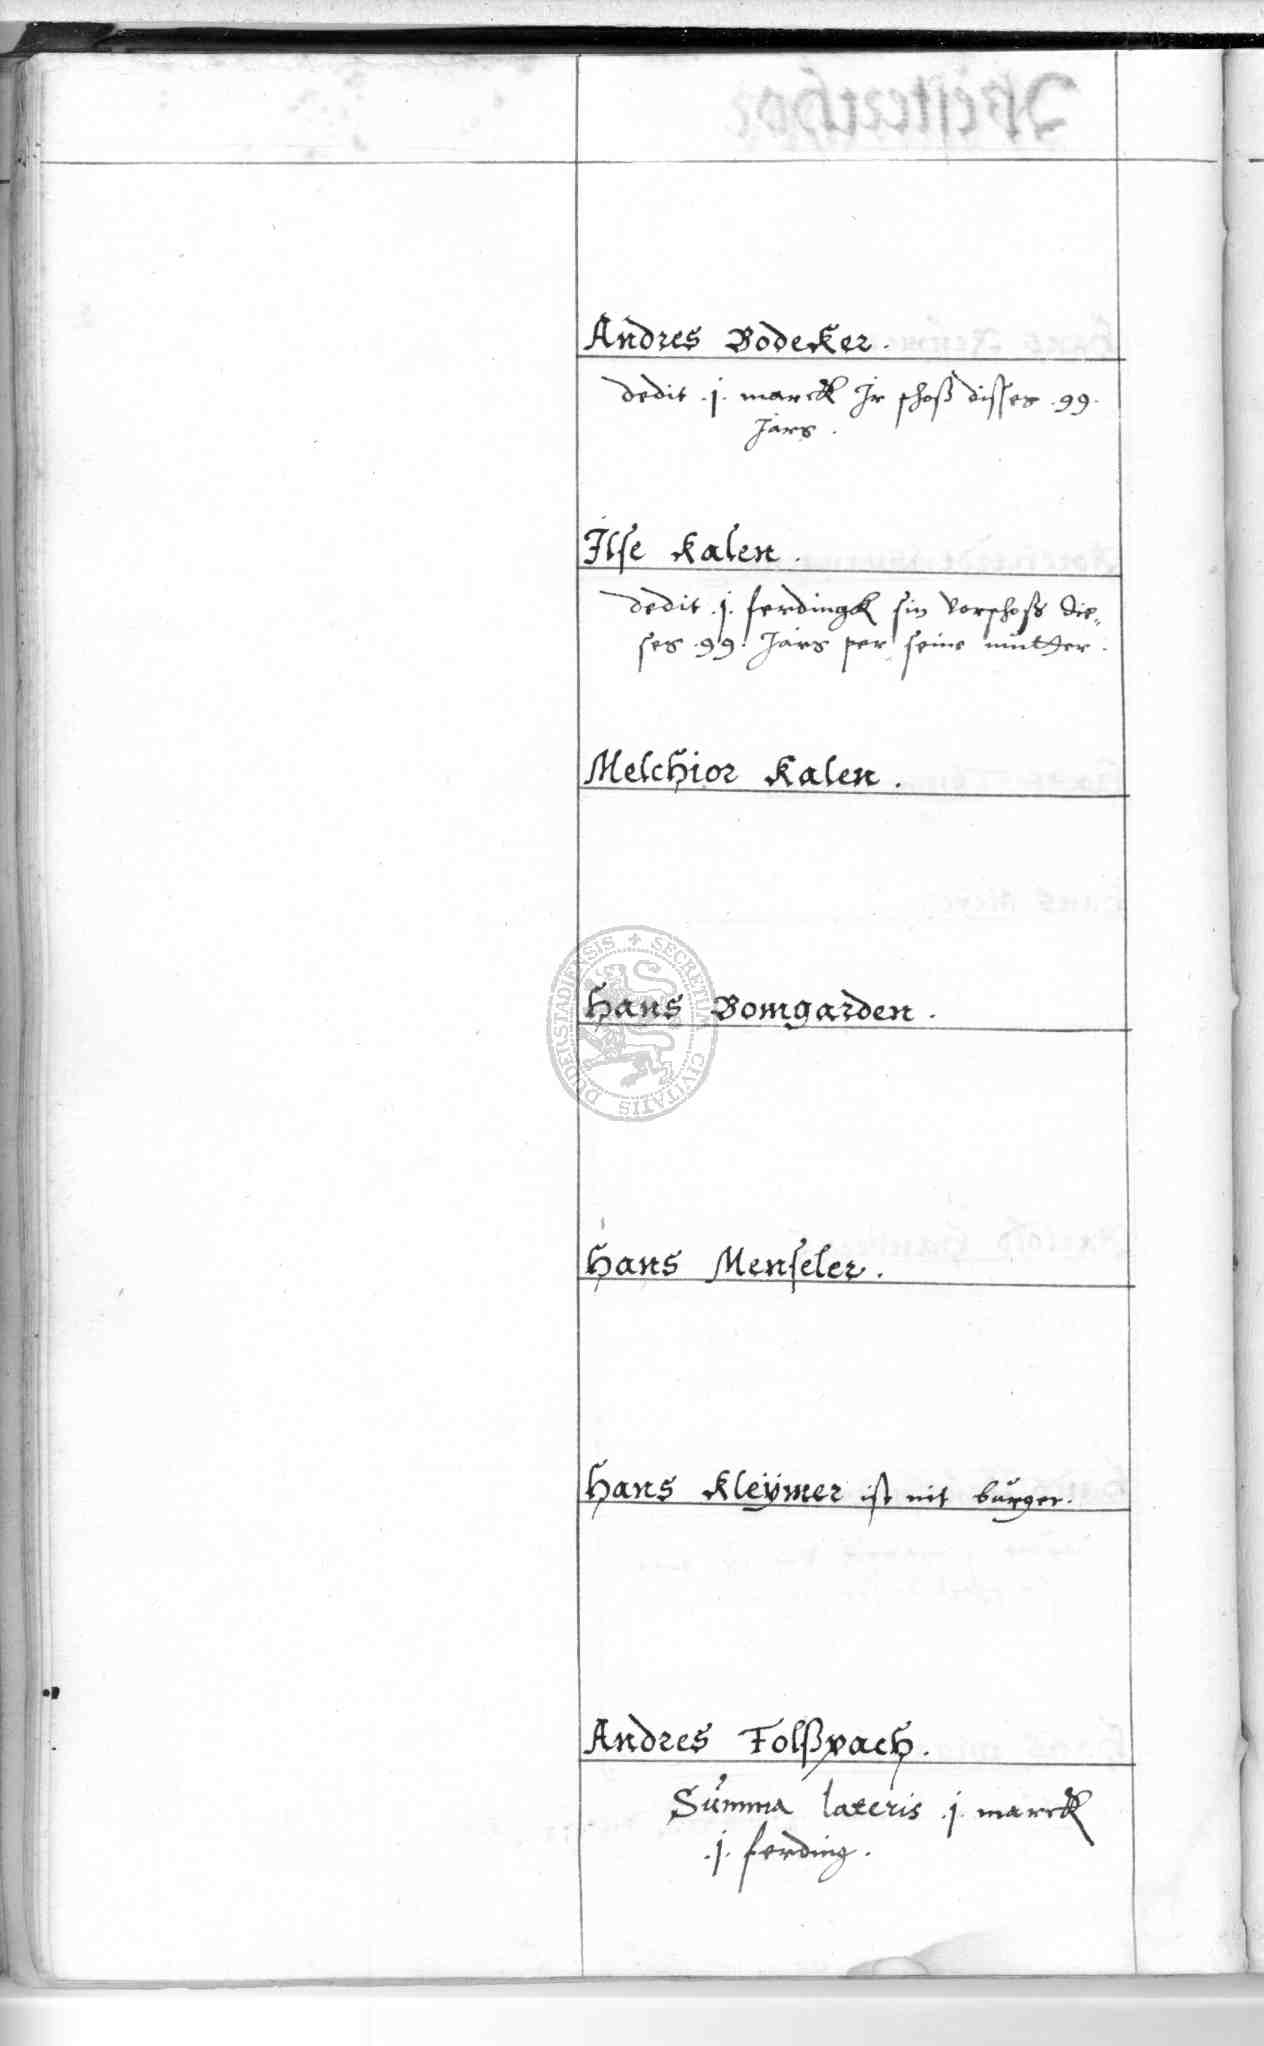 Andres Bodeker.
dedit .j. marck Jr schoß disses .99.
Jars.
Ilse Kalen.
dedit .j. ferdingk sin vorschoß die„
ses .99. Jars per seine mutter.
Melchior Kalen.
Hans Bomgarden.
DUDERSTADIENSIS + SECRETUM CIVITATIS
Hans Menseler.
Hans Kleymer ist nit bürger.
Andres Folßvach.
Summa lateris .j. marck
.j. ferding.